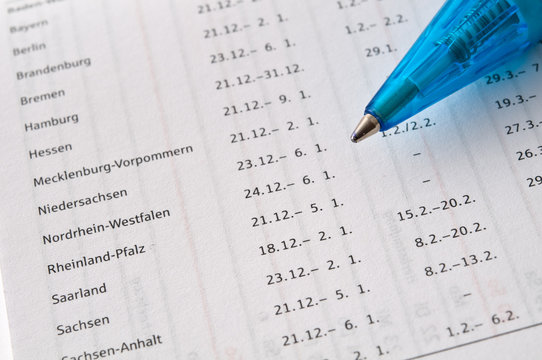 Bayern
Berlin 21.12.– 2. 1.
Brandenburg 21.12.– 2. 1.
Bremen 23.12.– 6. 1. 1.2.–2.2.
Hamburg 21.12.–31.12. 29.1.
Hessen 21.12.– 9. 1.
Mecklenburg-Vorpommern 21.12.– 2. 1. 29.3.– 7
Niedersachsen 23.12.– 6. 1. 1.2./2.2. 19.3.–
Nordrhein-Westfalen 24.12.– 6. 1. – 27.3.–
Rheinland-Pfalz 21.12.– 5. 1. – 26.3
Saarland 18.12.– 2. 1. 15.2.–20.2. 29
Sachsen 23.12.– 2. 1. 8.2.–20.2.
Sachsen-Anhalt 21.12.– 5. 1. 8.2.–13.2.
21.12.– 6. 1. –
1.2.– 6.2.